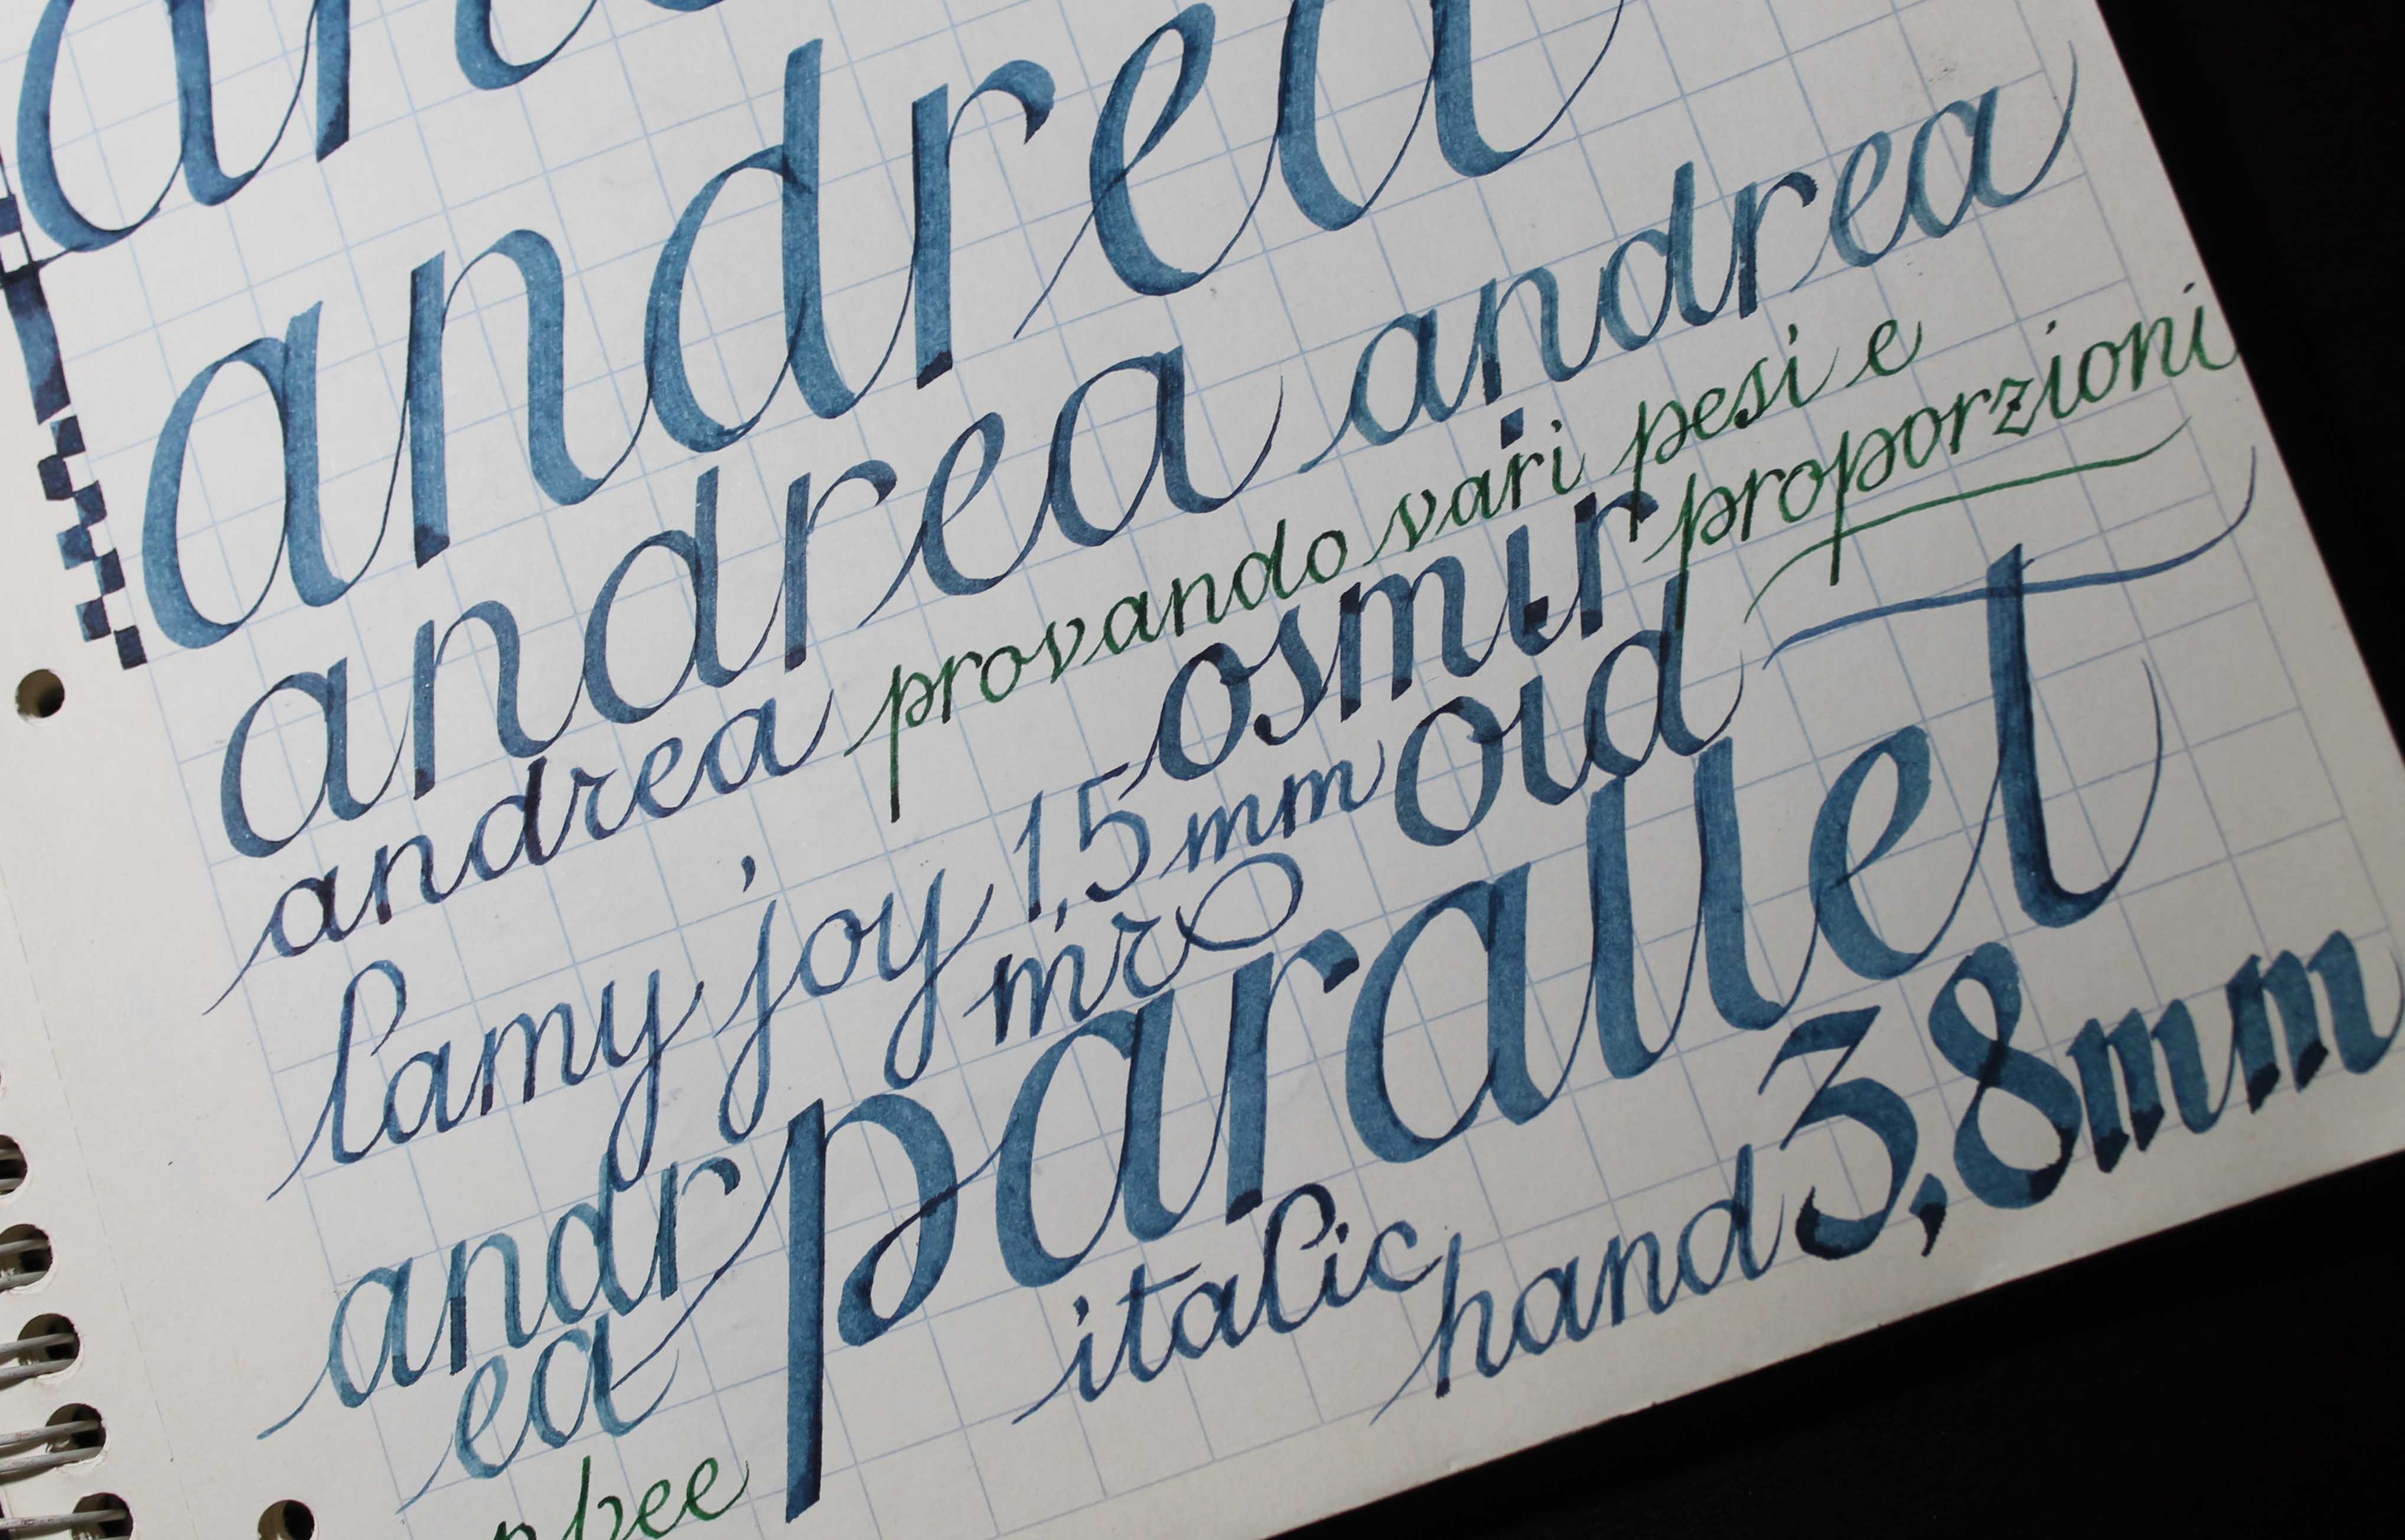 andrea
andrea andrea
andrea provando vari pesi e
proporzioni
osmir
oid
lamy joy 1,5 mm
parallel
andr
ea
italic hand 3,8mm